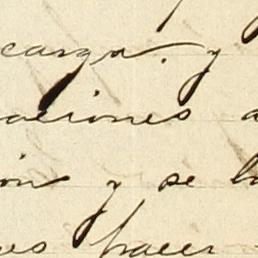 carga. y
aciones a
ión y se h
es hacer